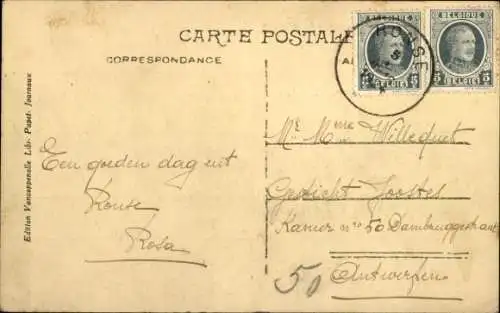 CARTE POSTALE
CORRESPONDANCE
BELGIQUE
5 BELGIË 5
BELGIQUE
5 BELGIË 5
RONSE
5
Edition Vanseppenolle Libr. Papet. Journaux
Een goeden dag uit
Ronse
Rosa
Mr. Mme Willequet
Gesticht Joostes
Kamer no 50 Dambruggestraat
50
Antwerpen